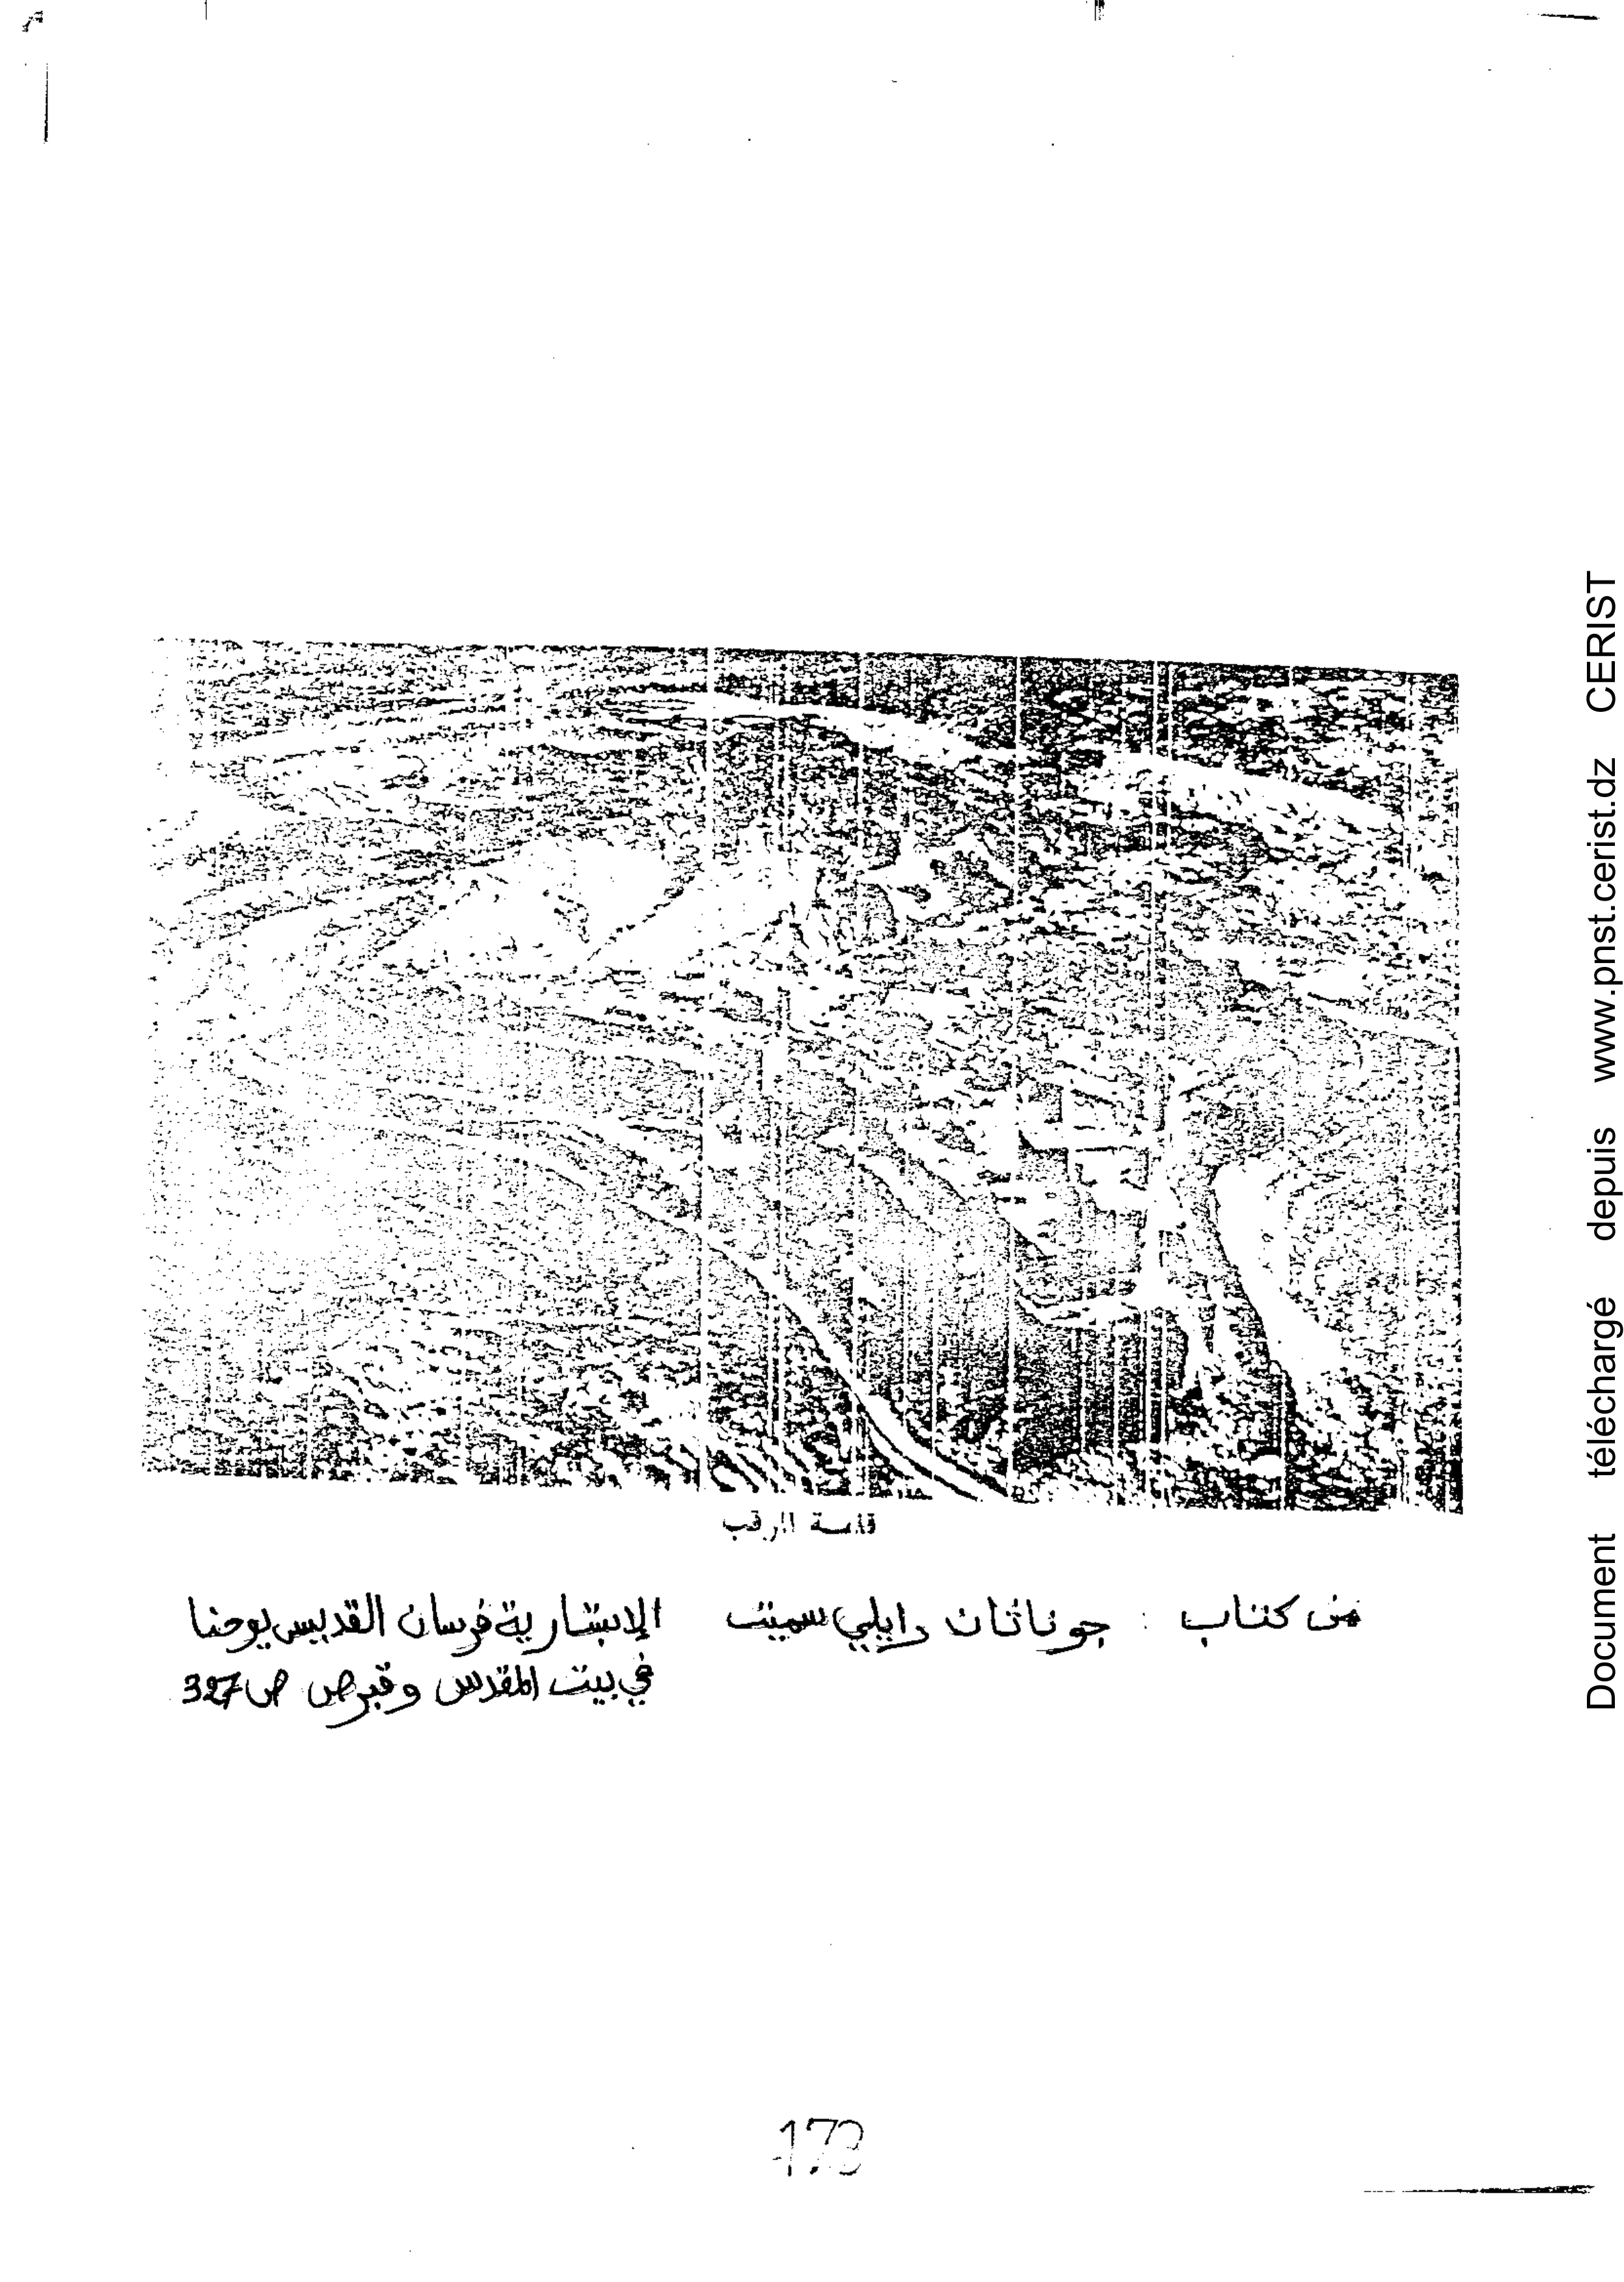 قلعة المرقب
من كتاب : جوناثان رايلي سميث الإسبتارية فرسان القديس يوحنا
في بيت المقدس وقبرص ص 327
173
Document téléchargé depuis www.pnst.cerist.dz CERIST